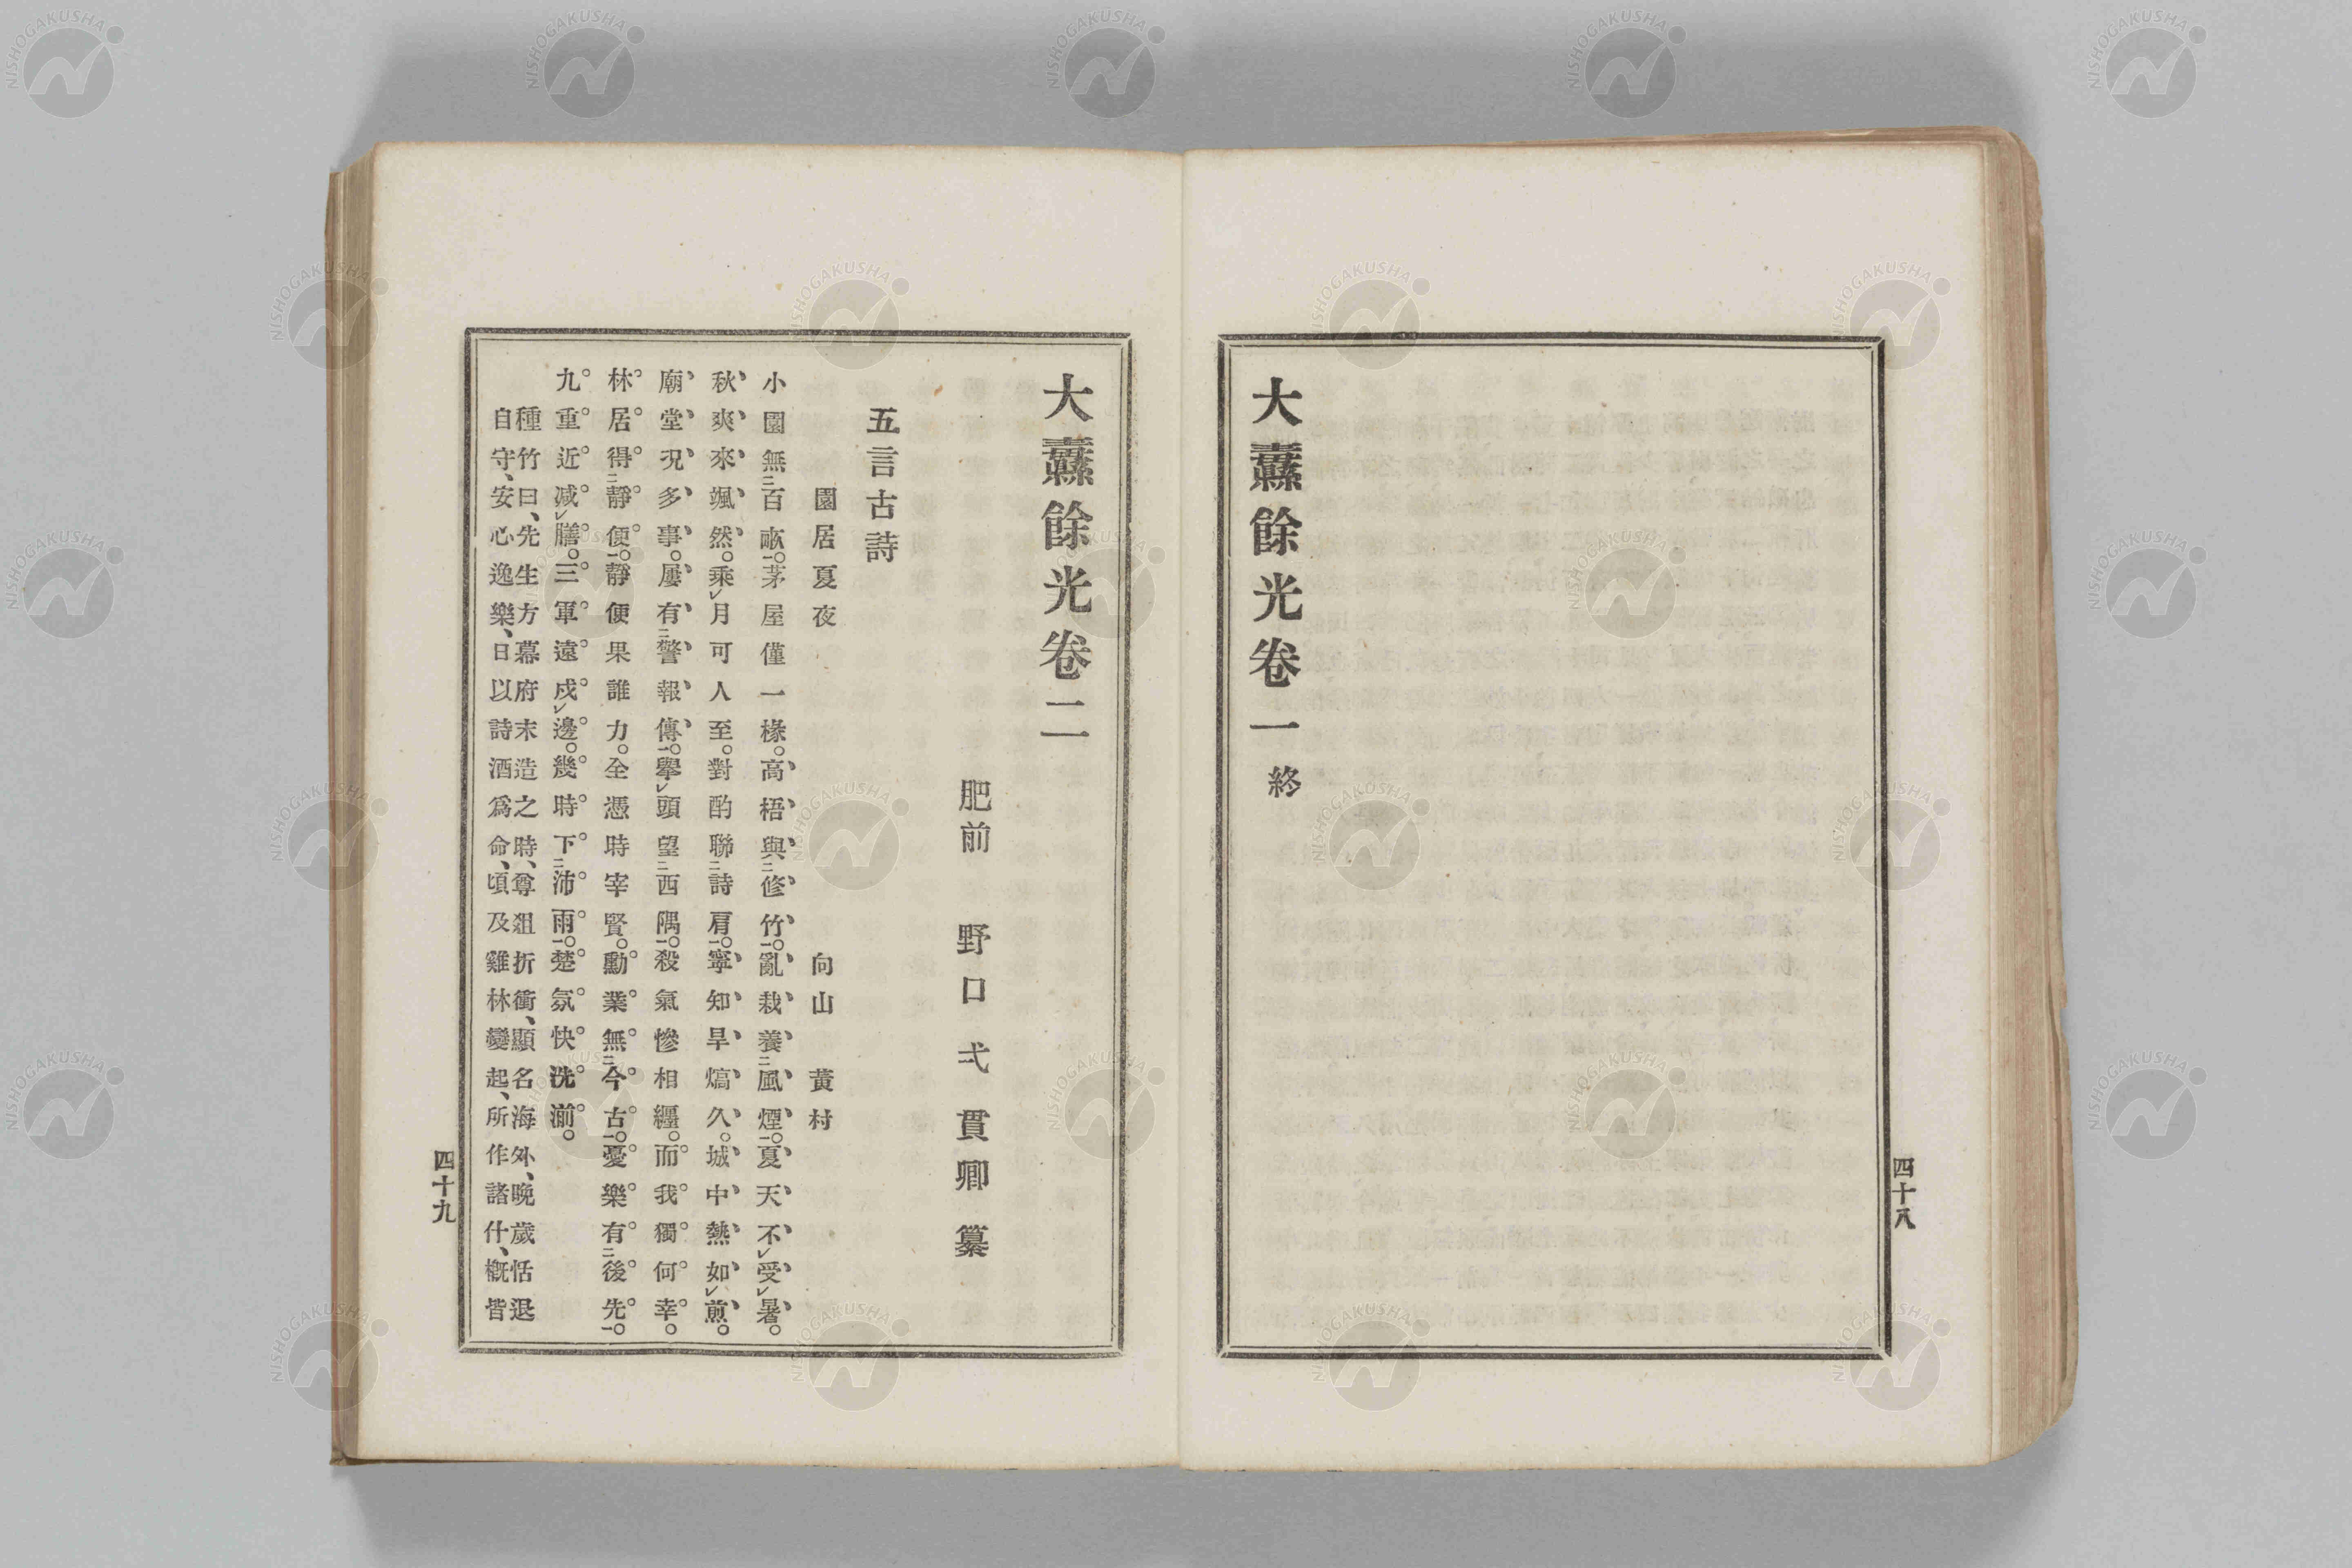 大纛餘光卷一 終
四十八
大纛餘光卷二
肥前 野口弌貫卿纂
五言古詩
園居夏夜 向山黃村
小園無二百畝一。茅屋僅一椽。高梧與二修竹一。亂栽養二風煙一。夏天不レ受レ暑。
秋爽來颯然。乘レ月可人至。對酌聯二詩肩一。寧知旱熇久。城中熱如レ煎。
廟堂況多事。屢有二警報傳一。擧レ頭望二西隅一。殺氣慘相纒。而我獨何幸。
林居得二靜便一。靜便果誰力。全憑時宰賢。勳業無二今古一。憂樂有二後先一。
九重近減レ膳。三軍遠戍レ邊。幾時下二沛雨一。楚氛快洗湔。
種竹曰、先生方幕府末造之時、尊俎折衝、顯名海外、晚歲恬退
自守、安心逸樂、日以詩酒爲命、頃及雞林變起、所作諸什、槪皆
四十九
NISHOGAKUSHA